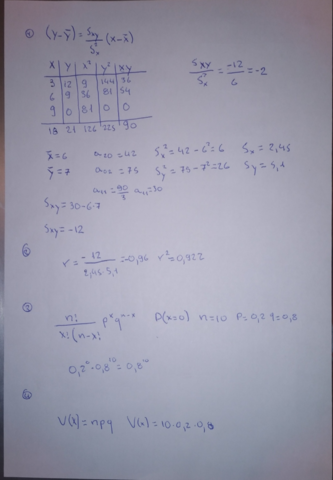 ① (y-ȳ)=Sxy/Sx² (x-x̄)
x y x² y² xy
3 12 9 144 36
6 9 36 81 54
9 0 81 0 0
18 21 126 225 90
Sxy/Sx² = -12/6 = -2
x̄=6 a20=42 Sx²=42-6²=6 Sx=2,45
ȳ=7 a02=75 Sy²=75-7²=26 Sy=5,1
a11=90/3 a11=30
Sxy=30-6·7
Sxy=-12
r= -12/2,45·5,1 =-0,96 r²=0,922
n!/x!(n-x! p^x q^n-x P(x=0) n=10 P=0,2 q=0,8
0,2⁰·0,8¹⁰=0,8¹⁰
V(x)=npq V(x)=10·0,2·0,8